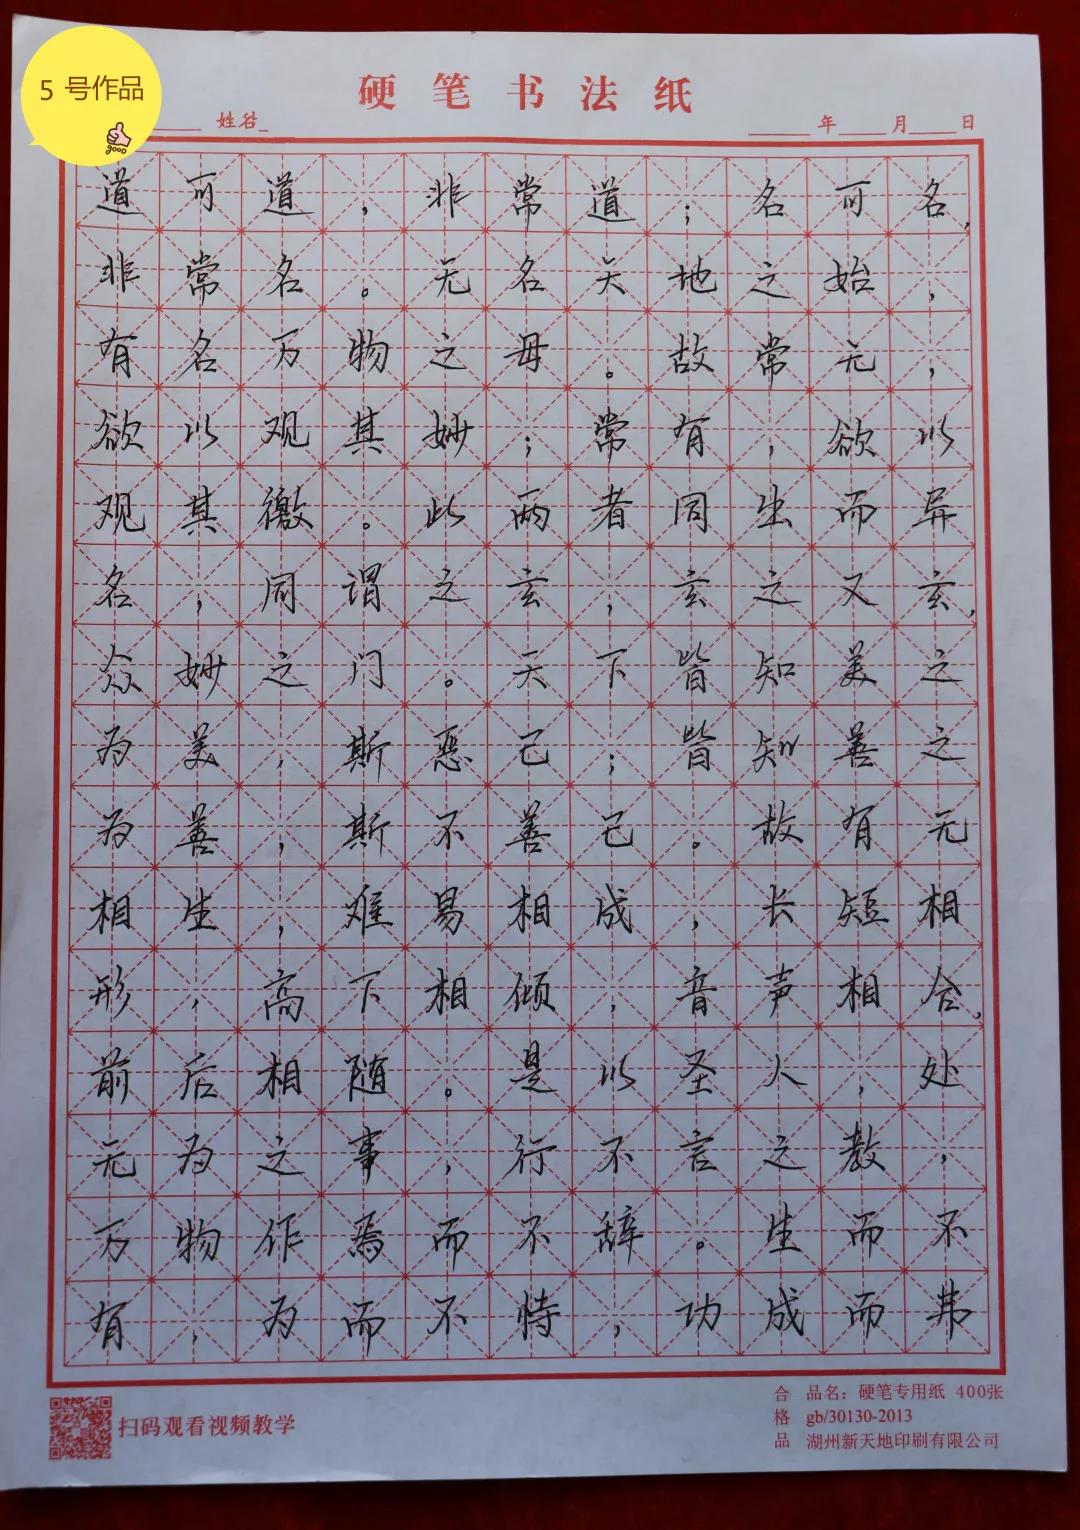 5 号作品
good
硬笔书法纸
姓名
年 月 日
道可道，非常道；名可名，
非常名。无名天地之始，
有名万物之母。故常无，
欲以观其妙；常有，欲以
观其徼。此两者同出而异
名，同谓之玄，玄之又玄，
众妙之门。天下皆知美之
为美，斯恶已；皆知善之
为善，斯不善已。故有无
相生，难易相成，长短相
形，高下相倾，音声相合，
前后相随。是以圣人，处
无为之事，行不言之教，
万物作焉而不辞。生而不
有，为而不恃，功成而弗
扫码观看视频教学
合格品
品名：硬笔专用纸 400张
gb/30130-2013
湖州新天地印刷有限公司